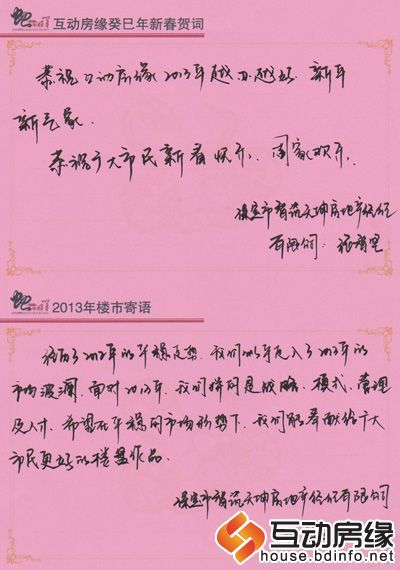 互动房缘癸巳年新春贺词
恭祝互动房缘2013年越办越好、新年
新气象。
恭祝广大市民新春快乐、阖家欢乐。
保定市智筑天坤房地产经纪
有限公司：
2013年楼市寄语
经历了2012年的平稳走势，我们似乎走入了2013年的
市场波澜，面对2013年，我们拼的是战略、模式、管理
及人才，希望在平稳的市场形势下，我们能奉献给广大
市民更好的楼盘作品。
保定市智筑天坤房地产经纪有限公司
互动房缘
house.bdinfo.net